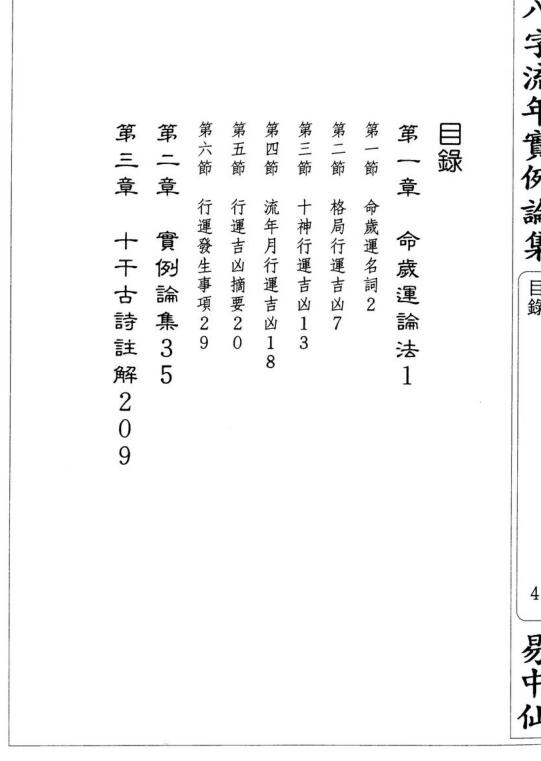 八字流年實例論集
目錄
4
易中仙
目錄
第一章 命歲運論法1
第一節 命歲運名詞2
第二節 格局行運吉凶7
第三節 十神行運吉凶13
第四節 流年月行運吉凶18
第五節 行運吉凶摘要20
第六節 行運發生事項29
第二章 實例論集35
第三章 十干古詩註解209